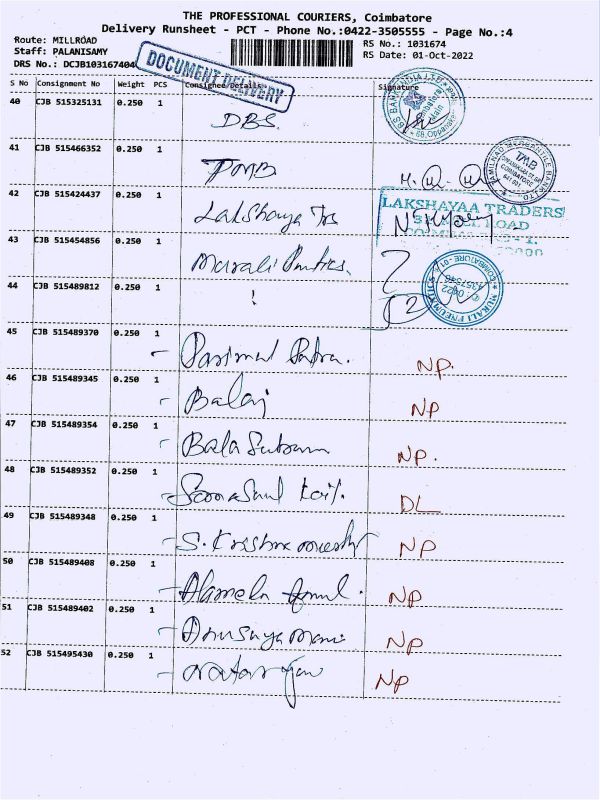 THE PROFESSIONAL COURIERS, Coimbatore
Delivery Runsheet - PCT - Phone No.:0422-3505555 - Page No.:4
Route: MILLROAD
RS No.: 1031674
Staff: PALANISAMY
RS Date: 01-Oct-2022
DRS No.: DCJB103167404
DOCUMENT DELIVERY
S No Consignment No Weight PCS Consignee/Details Signature
40 CJB 515325131 0.250 1 DBS
41 CJB 515466352 0.250 1 TMB
TMB
COIMBATORE
42 CJB 515424437 0.250 1 Lakshaya Trs
LAKSHAYAA TRADERS
43 CJB 515454856 0.250 1 Murali
MURALI PNEUMATICS
COIMBATORE - 01
44 CJB 515489812 0.250 1
45 CJB 515489370 0.250 1 NP.
46 CJB 515489345 0.250 1 Balaj NP
47 CJB 515489354 0.250 1 Bala NP.
48 CJB 515489352 0.250 1 DL
49 CJB 515489348 0.250 1 S. NP
50 CJB 515489408 0.250 1 Alamelu NP
51 CJB 515489402 0.250 1 NP
52 CJB 515495430 0.250 1 NP